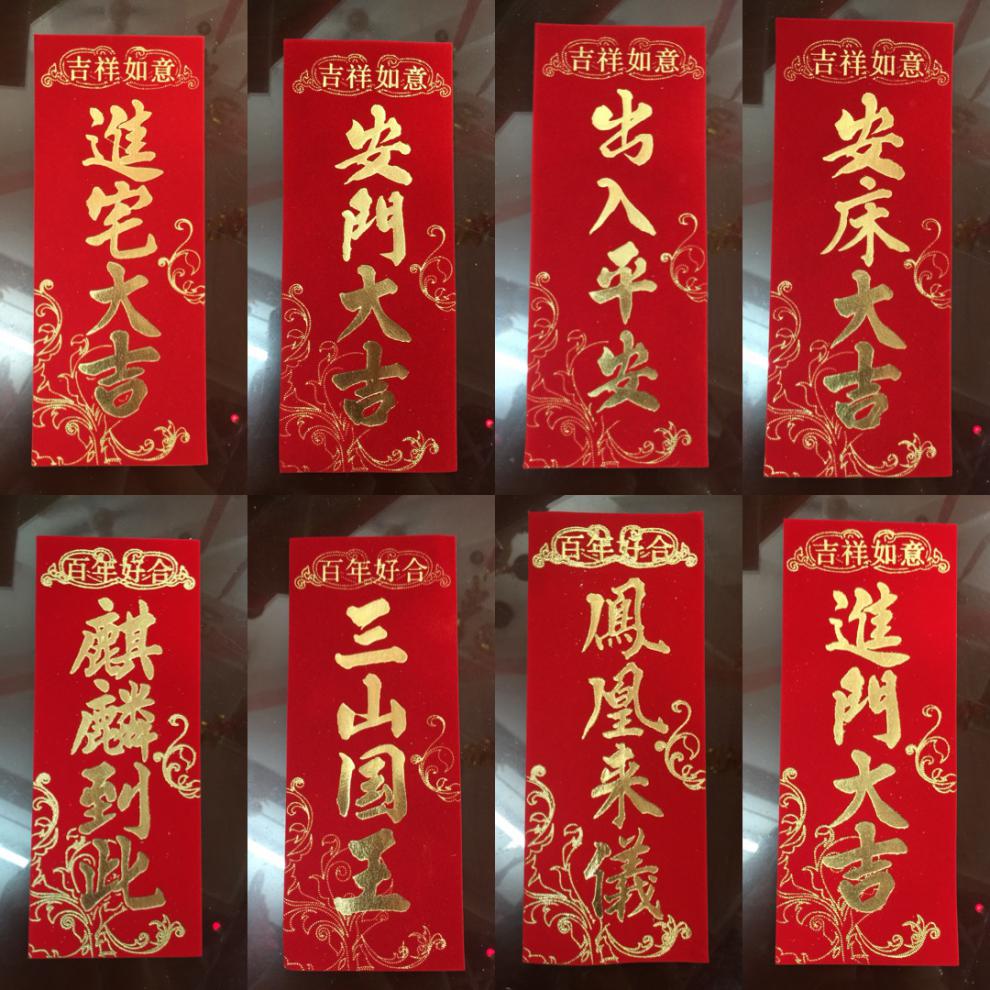 吉祥如意
進宅大吉
吉祥如意
安門大吉
吉祥如意
出入平安
吉祥如意
安床大吉
百年好合
麒麟到此
百年好合
三山国王
百年好合
鳳凰来儀
吉祥如意
進門大吉